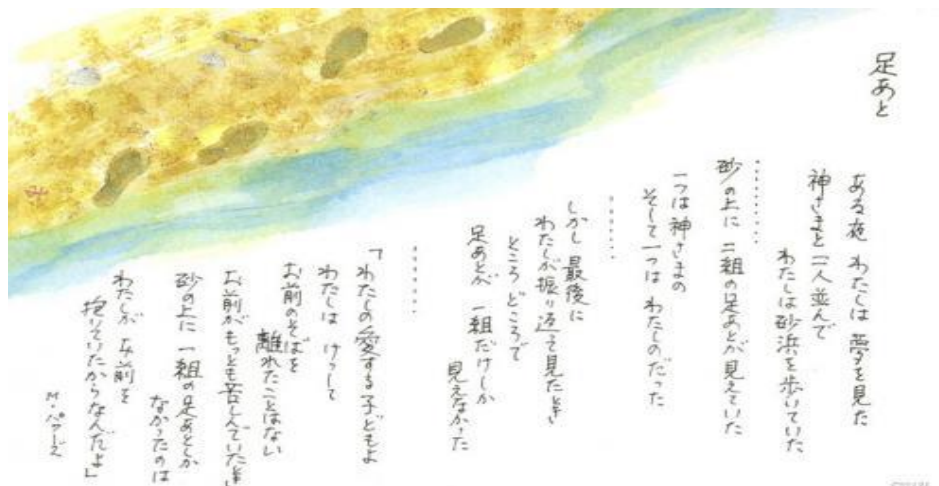 足あと
ある夜 わたしは 夢を見た
神さまと二人並んで
わたしは砂浜を歩いていた
………
砂の上に 二組の足あとが見えていた
一つは神さまの
そして一つは わたしのだった
………
しかし 最後に
わたしが振り返って見たとき
ところ どころで
足あとが 一組だけしか
見えなかった
………
「わたしの愛する子どもよ
わたしは けっして
お前のそばを
離れたことはない
お前がもっとも苦しんでいたとき
砂の上に 一組の足あとしか
なかったのは
わたしが お前を
抱いていたからなんだよ」
M・パワーズ